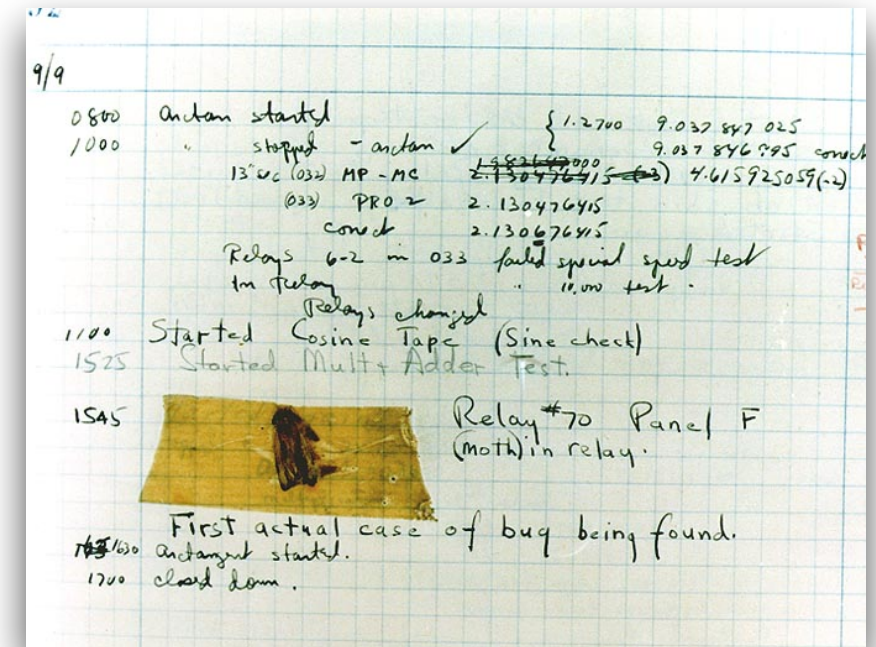 9/9
0800 arctan started { 1.2700 9.037 847 025
1000 " stopped - arctan ✓ 9.037 846 995 correct
13" sec (032) MP - MC 2.130476415 (-3) 4.615925059(-2)
(033) PRO 2 2.130476415
correct 2.130676415
Relays 6-2 in 033 failed special speed test
In Relay " 10.000 test .
Relays changed
1100 Started Cosine Tape (Sine check)
1525 Started Mult + Adder Test.
1545 Relay #70 Panel F
(moth) in relay.
First actual case of bug being found.
1630 arctangent started.
1700 closed down .